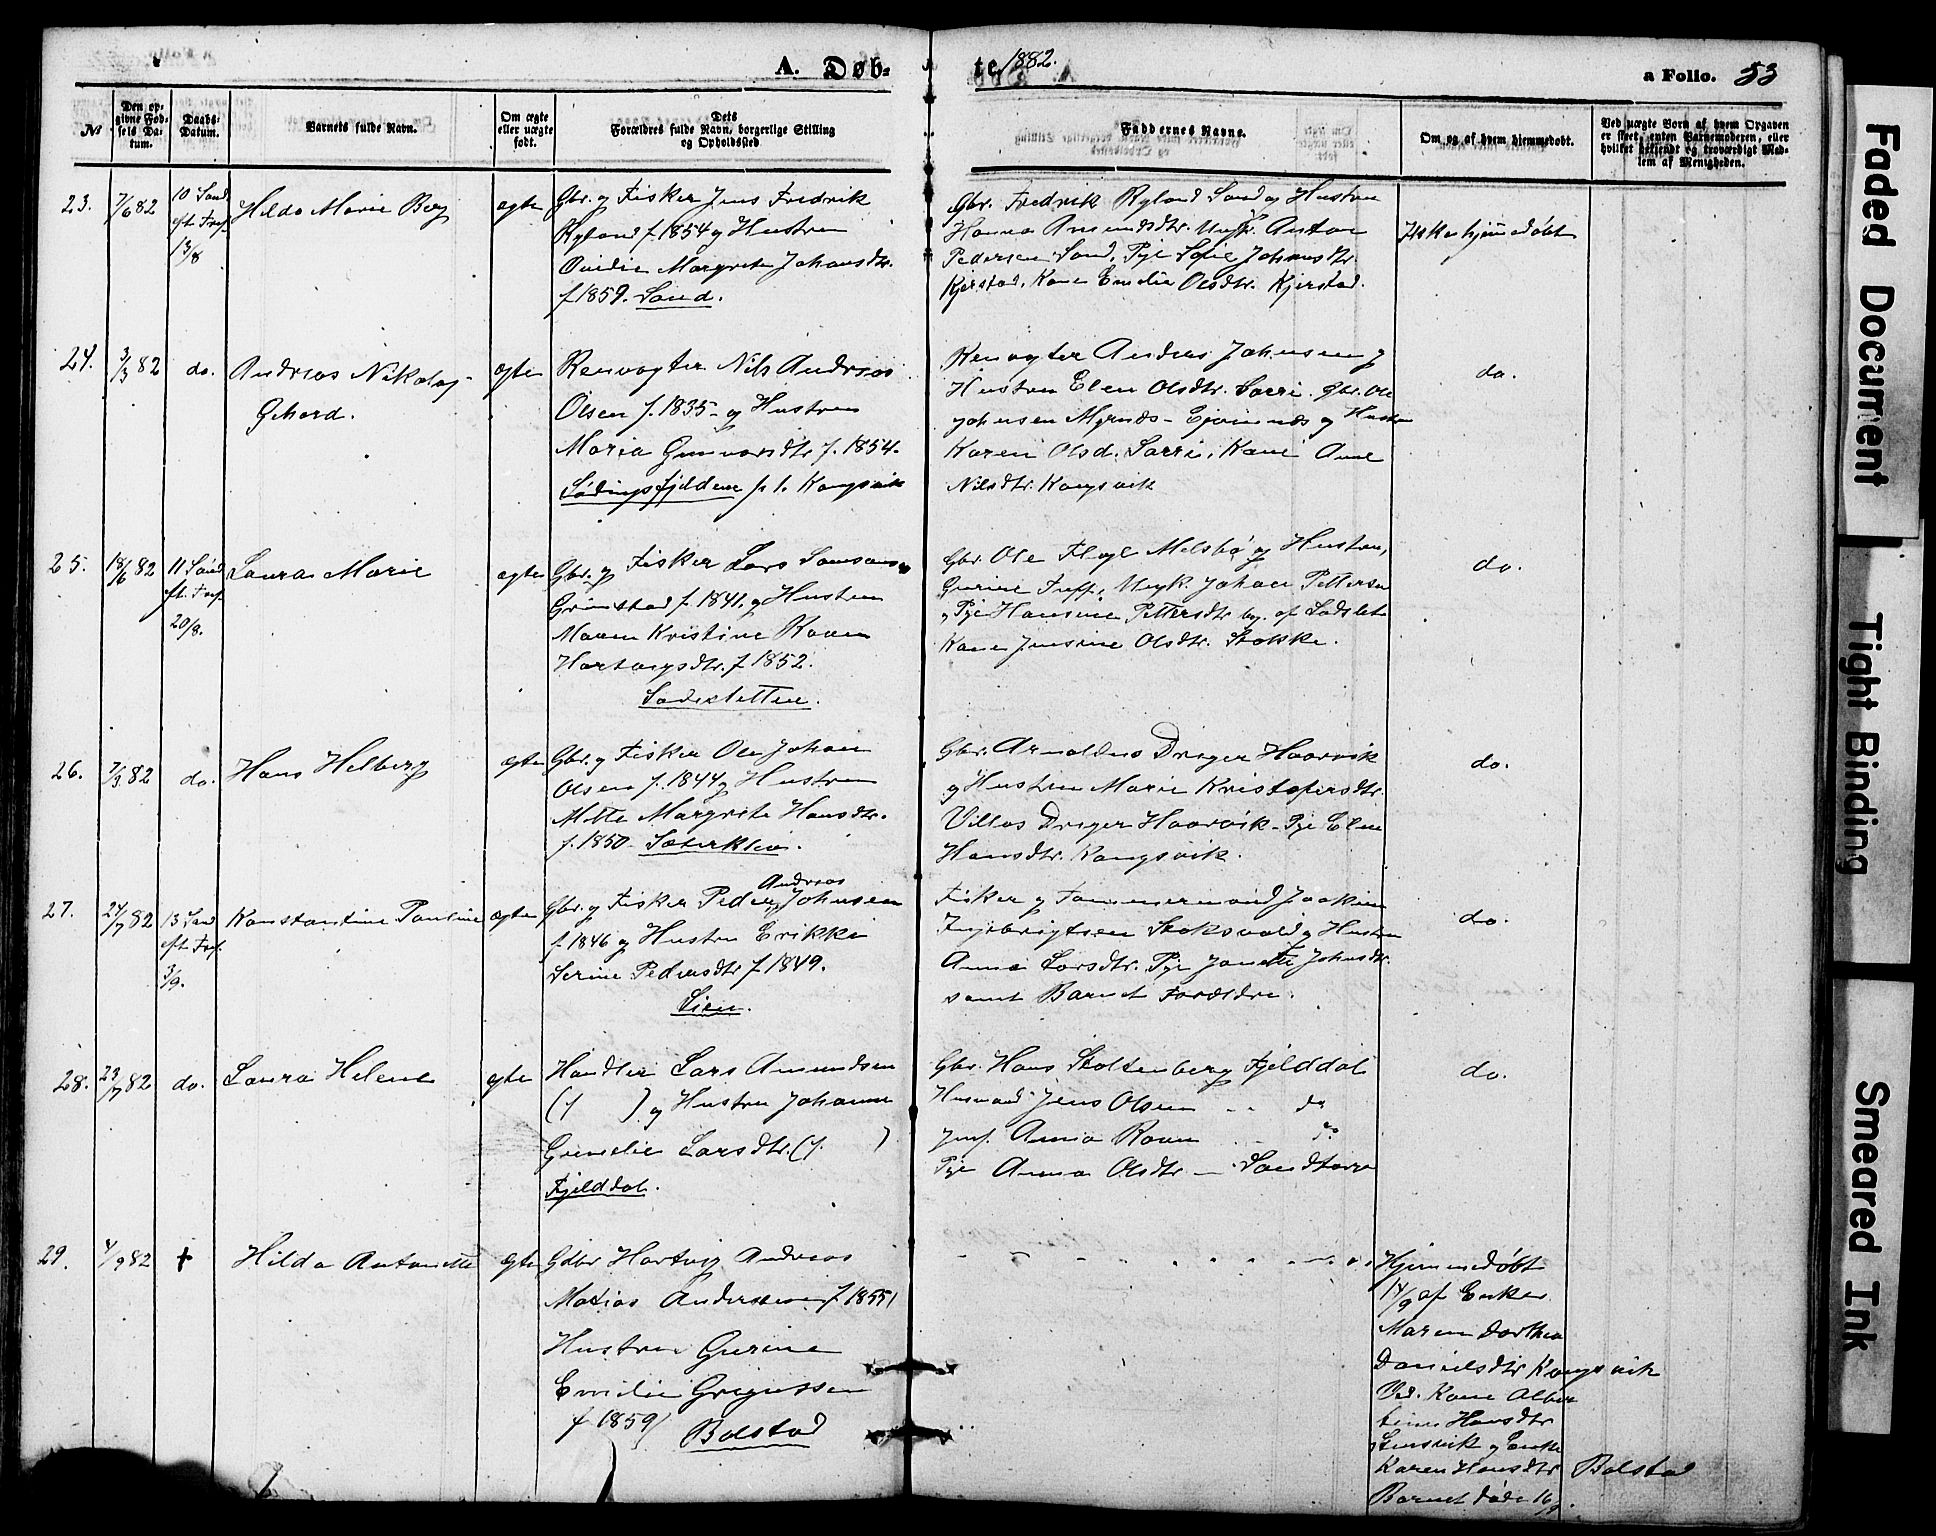 A. Døb-
te 1882.
a Folio. 53
№
Den op-
givne Fød-
sels Da-
tum.
Daabs-
Datum.
Barnets fulde Navn.
Om ægte
eller uægte
født.
Dets
Forældres fulde Navn, borgerlige Stilling
og Opholdssted
Faddernes Navne.
Om og af hvem hjemmedøbt.
Ved uægte Børn af hvem Opgaven
er skeet, enten Barnemoderen, eller
hvilket bekjendt og troværdigt Med-
lem af Menigheden.
23.
7/6 82
10 Sønd
eft. Tref.
13/8
Hilda Marie Berg
ægte
Gbr. og Fisker Jens Fredrik
Ryland f. 1854 og Hustru
Ovidie Margrete Johansdtr.
f 1859. Sand.
Gbr. Fredrik Ryland Sand og Hustru
Hanna Amundsdtr. Ungk. Anton
Pedersen Sand, Pige Sofie Johansdtr.
Kjerstad, Kone Emilie Olsdtr. Kjerstad.
Ikke hjemedøbt
24.
3/3 82
do.
Andreas Nikolay
Gehard.
ægte
Renvogter Nils Andreas
Olsen f. 1835 og Hustru
Maria Gunvorsdtr f. 1854.
Lødingsfjeldene p. t. Kongsvik
Renvogter Andreas Johnsen og
Hustru Elen Olsdtr. Sarri. Gbr. Ole
Johnsen Myrnes - Ejdnes og Hustru
Karen Olsd. Sarri, Kone Ane
Nilsdtr. Kongsvik
do.
25.
18/6 82
11 Sønd
eft. Tref.
20/8.
Laura Marie
ægte
Gbr. og Fisker Lars Samsonsen
Grimstad f. 1841. og Hustru
Maren Kristine Raven
Hartvigsdtr. f 1852.
Sandsletten.
Gbr. Ole Melsbø og Hustru,
Gurine Ungk. Johan Pettersen
og Pige Hansine Pettersdtr beg. af Sandslet
Kone Jensine Olsdtr. Stokke.
do.
26.
7/3 82
do.
Hans Helberg
ægte
Gbr. og Fisker Ole Johan
Olsen f. 1844 og Hustru
Mette Margrete Hansdtr.
f. 1850. Sæterklien.
Gbr. Arnoldus Dreyer Haarvik
og Hustru Marie Kristofersdtr.
Villas Dreyer Haarvik - Pige Elen
Hansdtr. Kongsvik.
do.
27.
24/7 82
13 Sønd
eft. Tref.
3/9.
Konstantine Pauline
ægte
Andreas
Gbr. og Fisker Peder Johnsen
f. 1846 og Hustru Erikka
Serine Pedersdtr f 1849.
Lien.
Fisker og Tømmermand Joakim
Ingebrigtsen Stoksvold og Hustru
Anna Larsdtr. Pige Janette Johnsdtr.
samt Barnets Forældre.
do.
28.
23/7 82
do.
Laura Helene
ægte
Handler Lars Amundsen
(f ) og Hustru Johanne
Larsdtr. (f. )
Fjelddal.
Gbr. Hans Stoltenberg Fjelddal
Husmand Jens Olsen - - do
Jmf. Anna Raven - - do
Pige Anna Olsdtr. - Sandtorg
do.
29.
4/9 82
+
Hilda Antonette
ægte
Gdbr Hartvig Andreas
Matias Andersen f 1855/
Hustru Gurine
Emilie Gregussen
f 1859/ Bolstad
Hjemmedøbt
14/9 af Enken
Maren Dorthea
Danielsdtr Kongsvik
Ved. Kone Alber
tine Hansdtr
og Enke
Karen Hansdtr Bolstad
Barnet døde 16/9.
Faded Document
Tight Binding
Smeared Ink